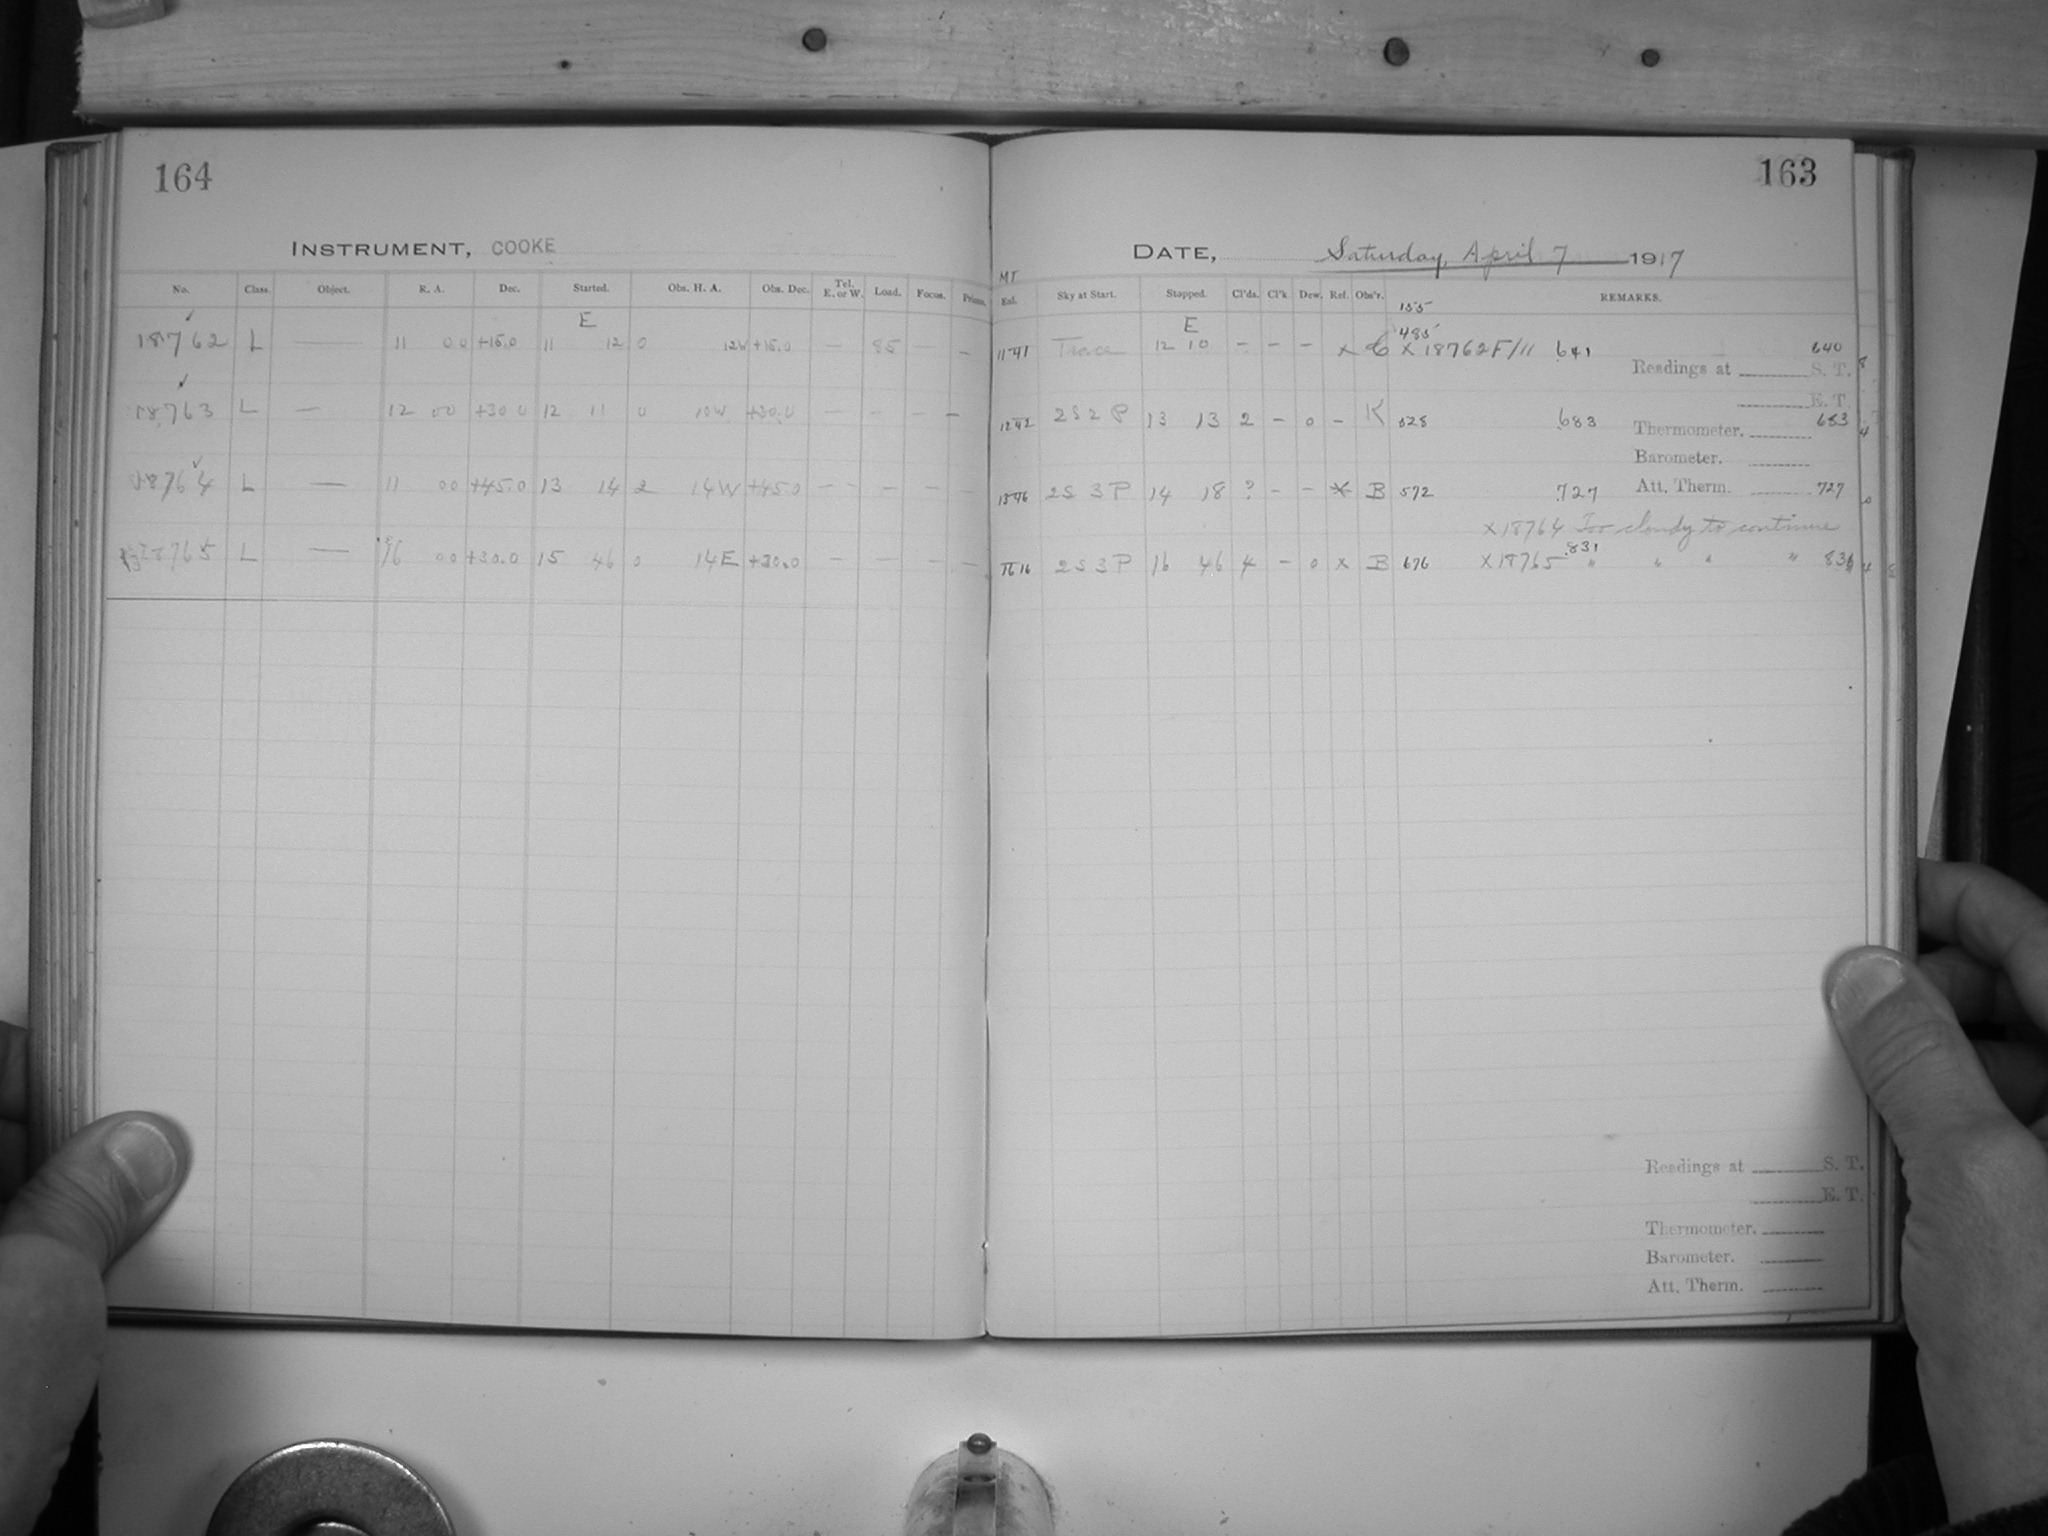 164
INSTRUMENT, COOKE
No. Class. Object. R. A. Dec. Started. Obs. H. A. Obs. Dec. Tel. E. or W. Load. Focus. Prisms.
E
18762 L — 11 00 +15.0 11 12 0 12W +15.0 — 85 — —
18763 L — 12 00 +30 0 12 11 0 10W +30.0 — — — —
18764 L — 11 00 +45.0 13 14 2 14W +45.0 — — — — —
18765 L — 16 00 +30.0 15 46 0 14E +30.0 — — — —
163
DATE, Saturday, April 7 1917
MT
Exl. Sky at Start. Stopped. Cl'ds. Cl'k. Dew. Ref. Obs'r. REMARKS.
155
E
485
11 41 Trace 12 10 – – – x C x 18762 F/11 641 640
Readings at S. T. 8
E. T.
12 42 2 S 2 P 13 13 2 – 0 – K 528 683 683
Thermometer. 4
Barometer.
13 46 2 S 3 P 14 18 ? – – x B 572 727 Att. Therm. 727
x 18764 Too cloudy to continue
831
16 16 2 S 3 P 16 46 4 – 0 x B 676 x 18765 " " " " 831
Readings at S. T.
E. T.
Thermometer.
Barometer.
Att. Therm.